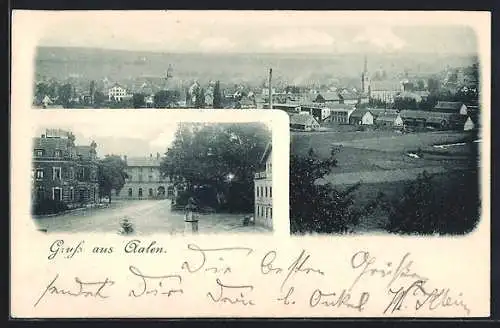 Gruß aus Aalen. Die besten Grüße
sendet Dir Dein lb. Onkel W. Klein